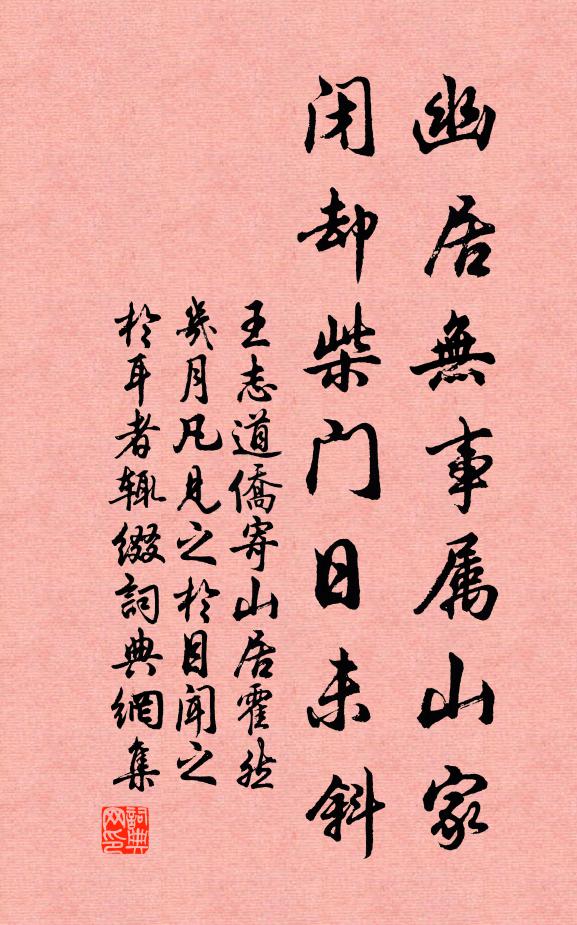 幽居無事属山家
闭却柴门日未斜
王志道僑寄山居霍然
幾月凡见之於目闻之
於耳者辄缀詞典網集
詞典
网印